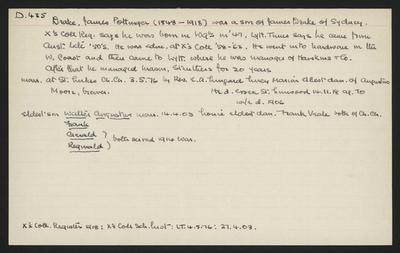 D.435
Drake, James Pottinger (1848 – 1918) was a son of James Drake of Sydney.
X's Coll Reg. says he was born in in '47. Lytt. Times says he came from
Aust. late '50's. He was educ. at X's Coll '58-'62. He went into hardware on the
W. Coast and then came to Lytt. where he was manager of Hawkins & Co.
After that he managed Mason, Struthers for 20 years
marr. at St. Lukes Ch.Ch. 3.5.76 by Rev. E.A. Lingard Lucy Maria eldest dau. of Augustus
Moore, brewer. He d. Essex St. Linwood 14.11.18 ag. 70
eldest son Walter Augustus marr. 14.4.03 eldest dau. Frank Vale both of Ch.Ch.
Frank
Gerald
Reginald
both served 1914 War.
X's Coll. Register 1918: X's Coll Sch. List: LT. 4.5.76: 27.4.03.